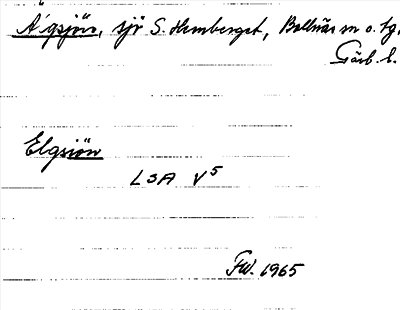 Älgsjön, sjö S. Hemberget, Bollnäs sn o. tg.
Gävl. l.
Elgsjön
LSA V5
FW. 1965